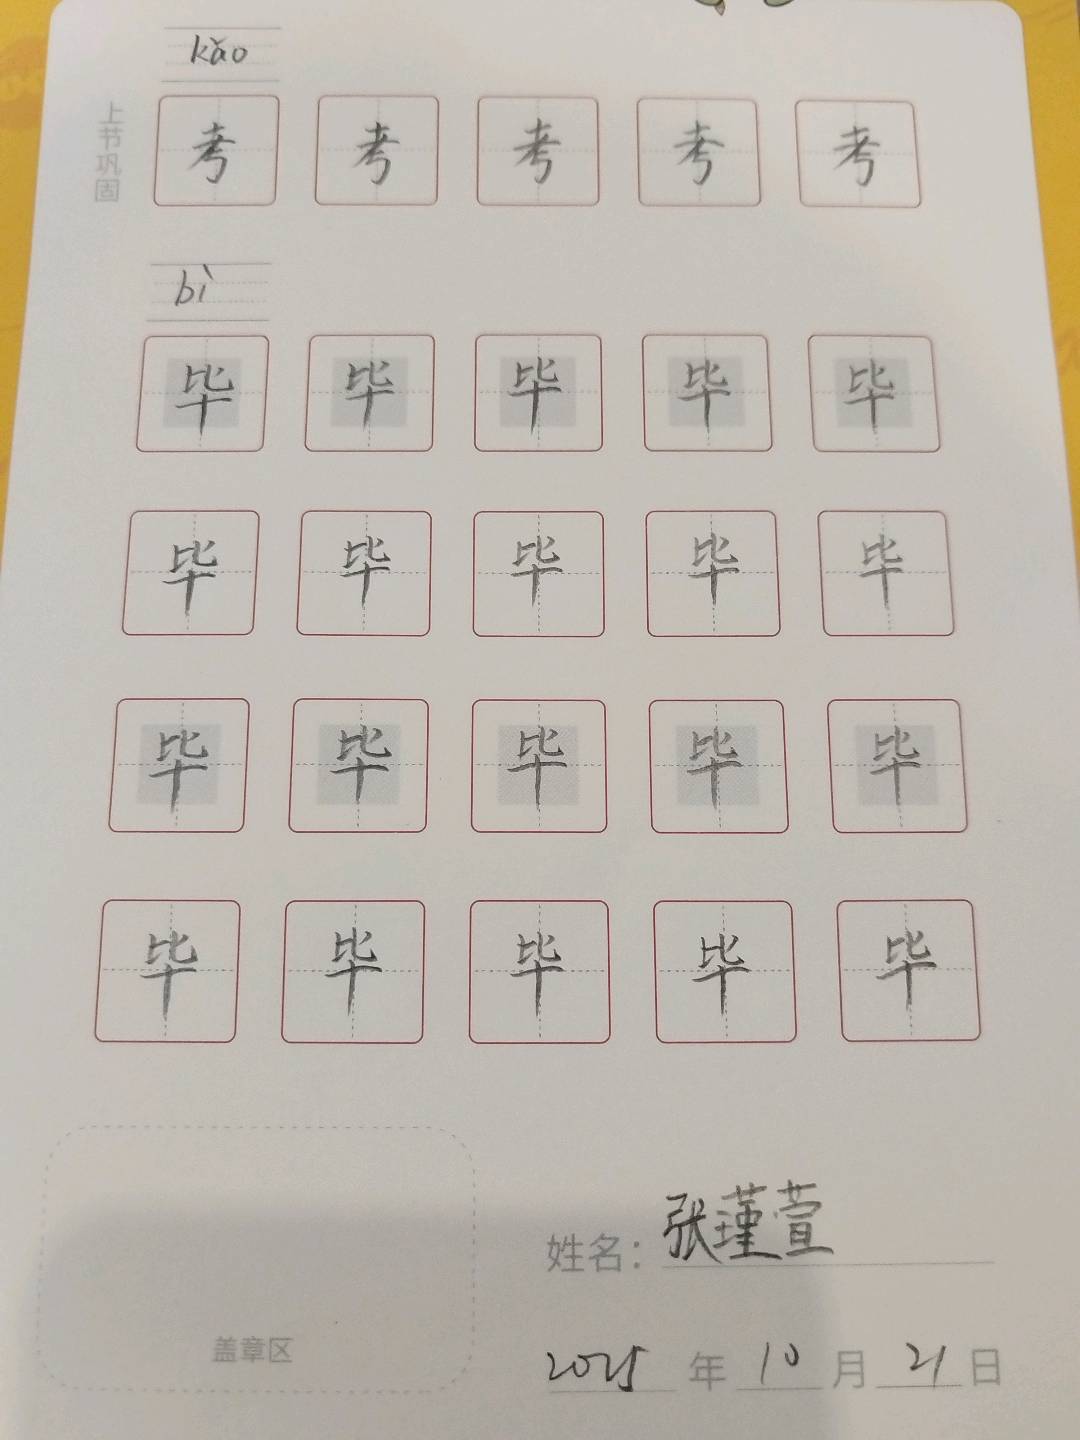 kǎo
上节巩固
考 考 考 考 考
bì
毕 毕 毕 毕 毕
毕 毕 毕 毕 毕
毕 毕 毕 毕 毕
毕 毕 毕 毕 毕
姓名：张瑾萱
盖章区
2025 年 10 月 21 日